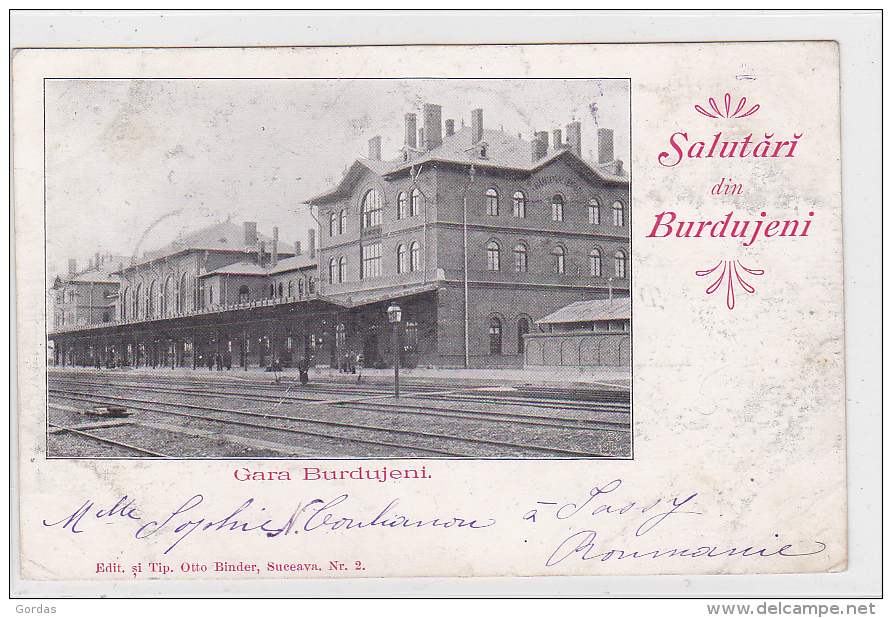 Salutări
din
Burdujeni
Gara Burdujeni.
Mlle Sophie N. Coulianou à Jassy
Roumanie
Edit. și Tip. Otto Binder, Suceava. Nr. 2.
Gordas
www.delcampe.net